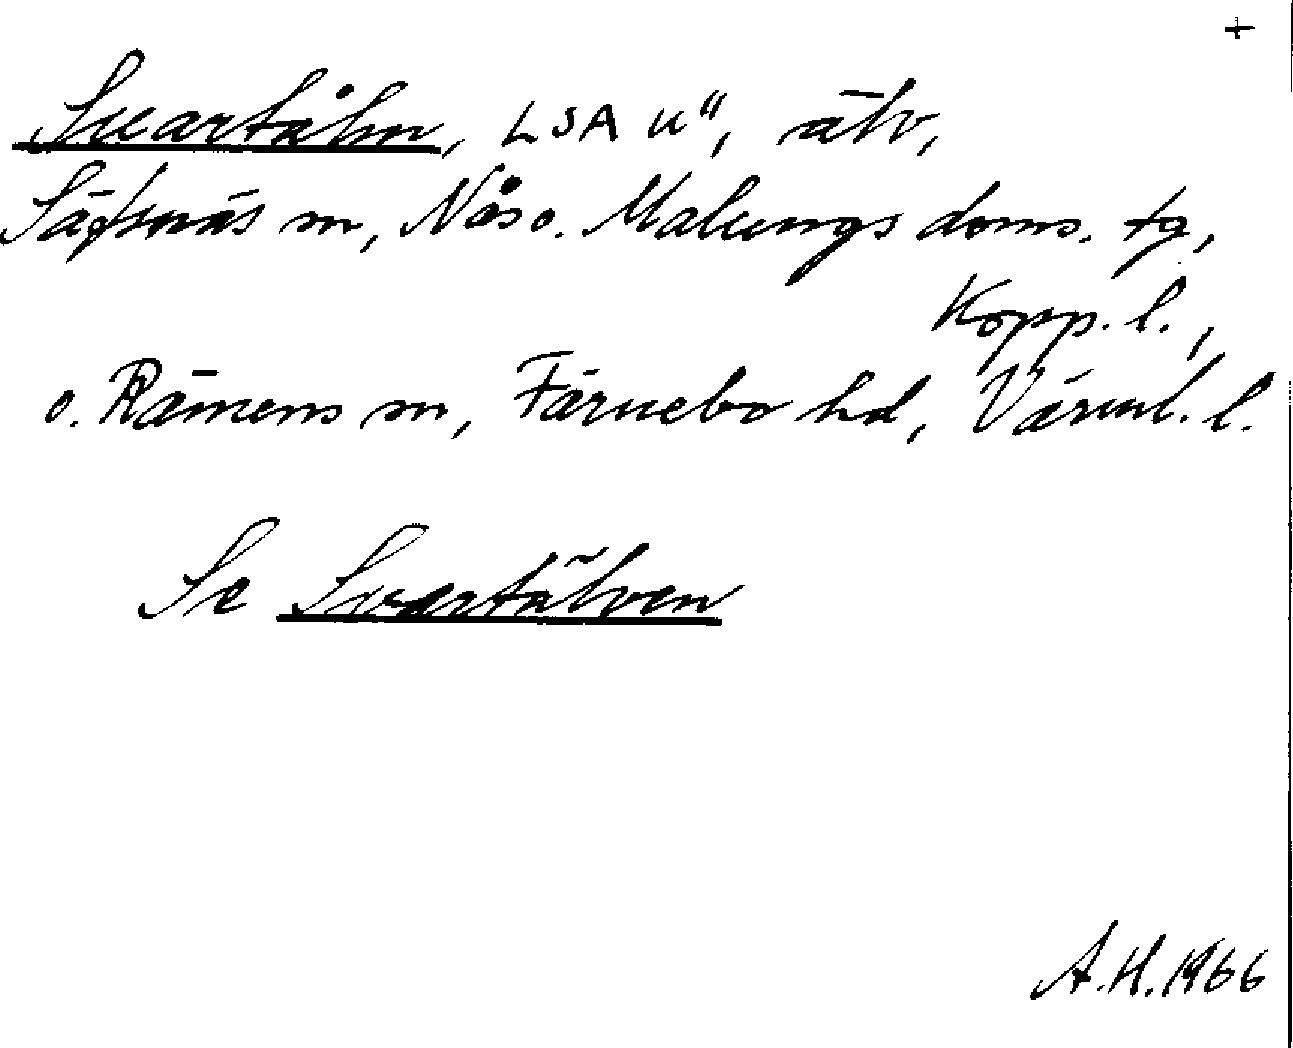 +
Svartåhn, LSA u", älv,
Säfsnäs sn, Nås o. Malungs doms. tg,
Kopp. l.,
o. Rämens sn, Färnebo hd, Värml. l.
Se Svartälven
A.H. 1966